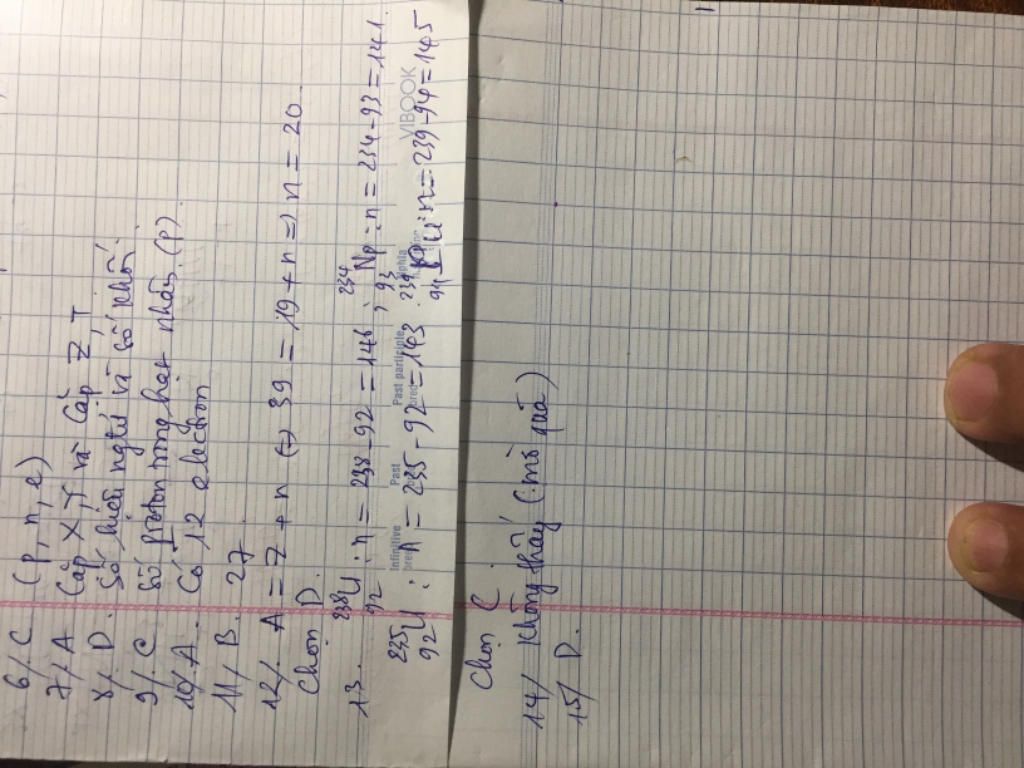 6/ C (p, n, e)
7/ A Cặp X, Y và cặp Z, T
8/ D. Số hiệu ngtử và số khối.
9/ C Số proton trong hạt nhân (P)
10/ A. Có 12 electron
11/ B. 27
12/ A = Z + n ⇔ 39 = 19 + n ⇒ n = 20.
Chọn D.
13. ²³⁸₉₂U : n = 238 - 92 = 146 ; ²³⁴₉₃Np : n = 234 - 93 = 141.
²³⁵₉₂U : n = 235 - 92 = 143 ; ²³⁹₉₄Pu : n = 239 - 94 = 145
Infinitive Past Past participle
VIBOOK
Chọn C.
14/ Không thấy (mờ quá)
15/ D.